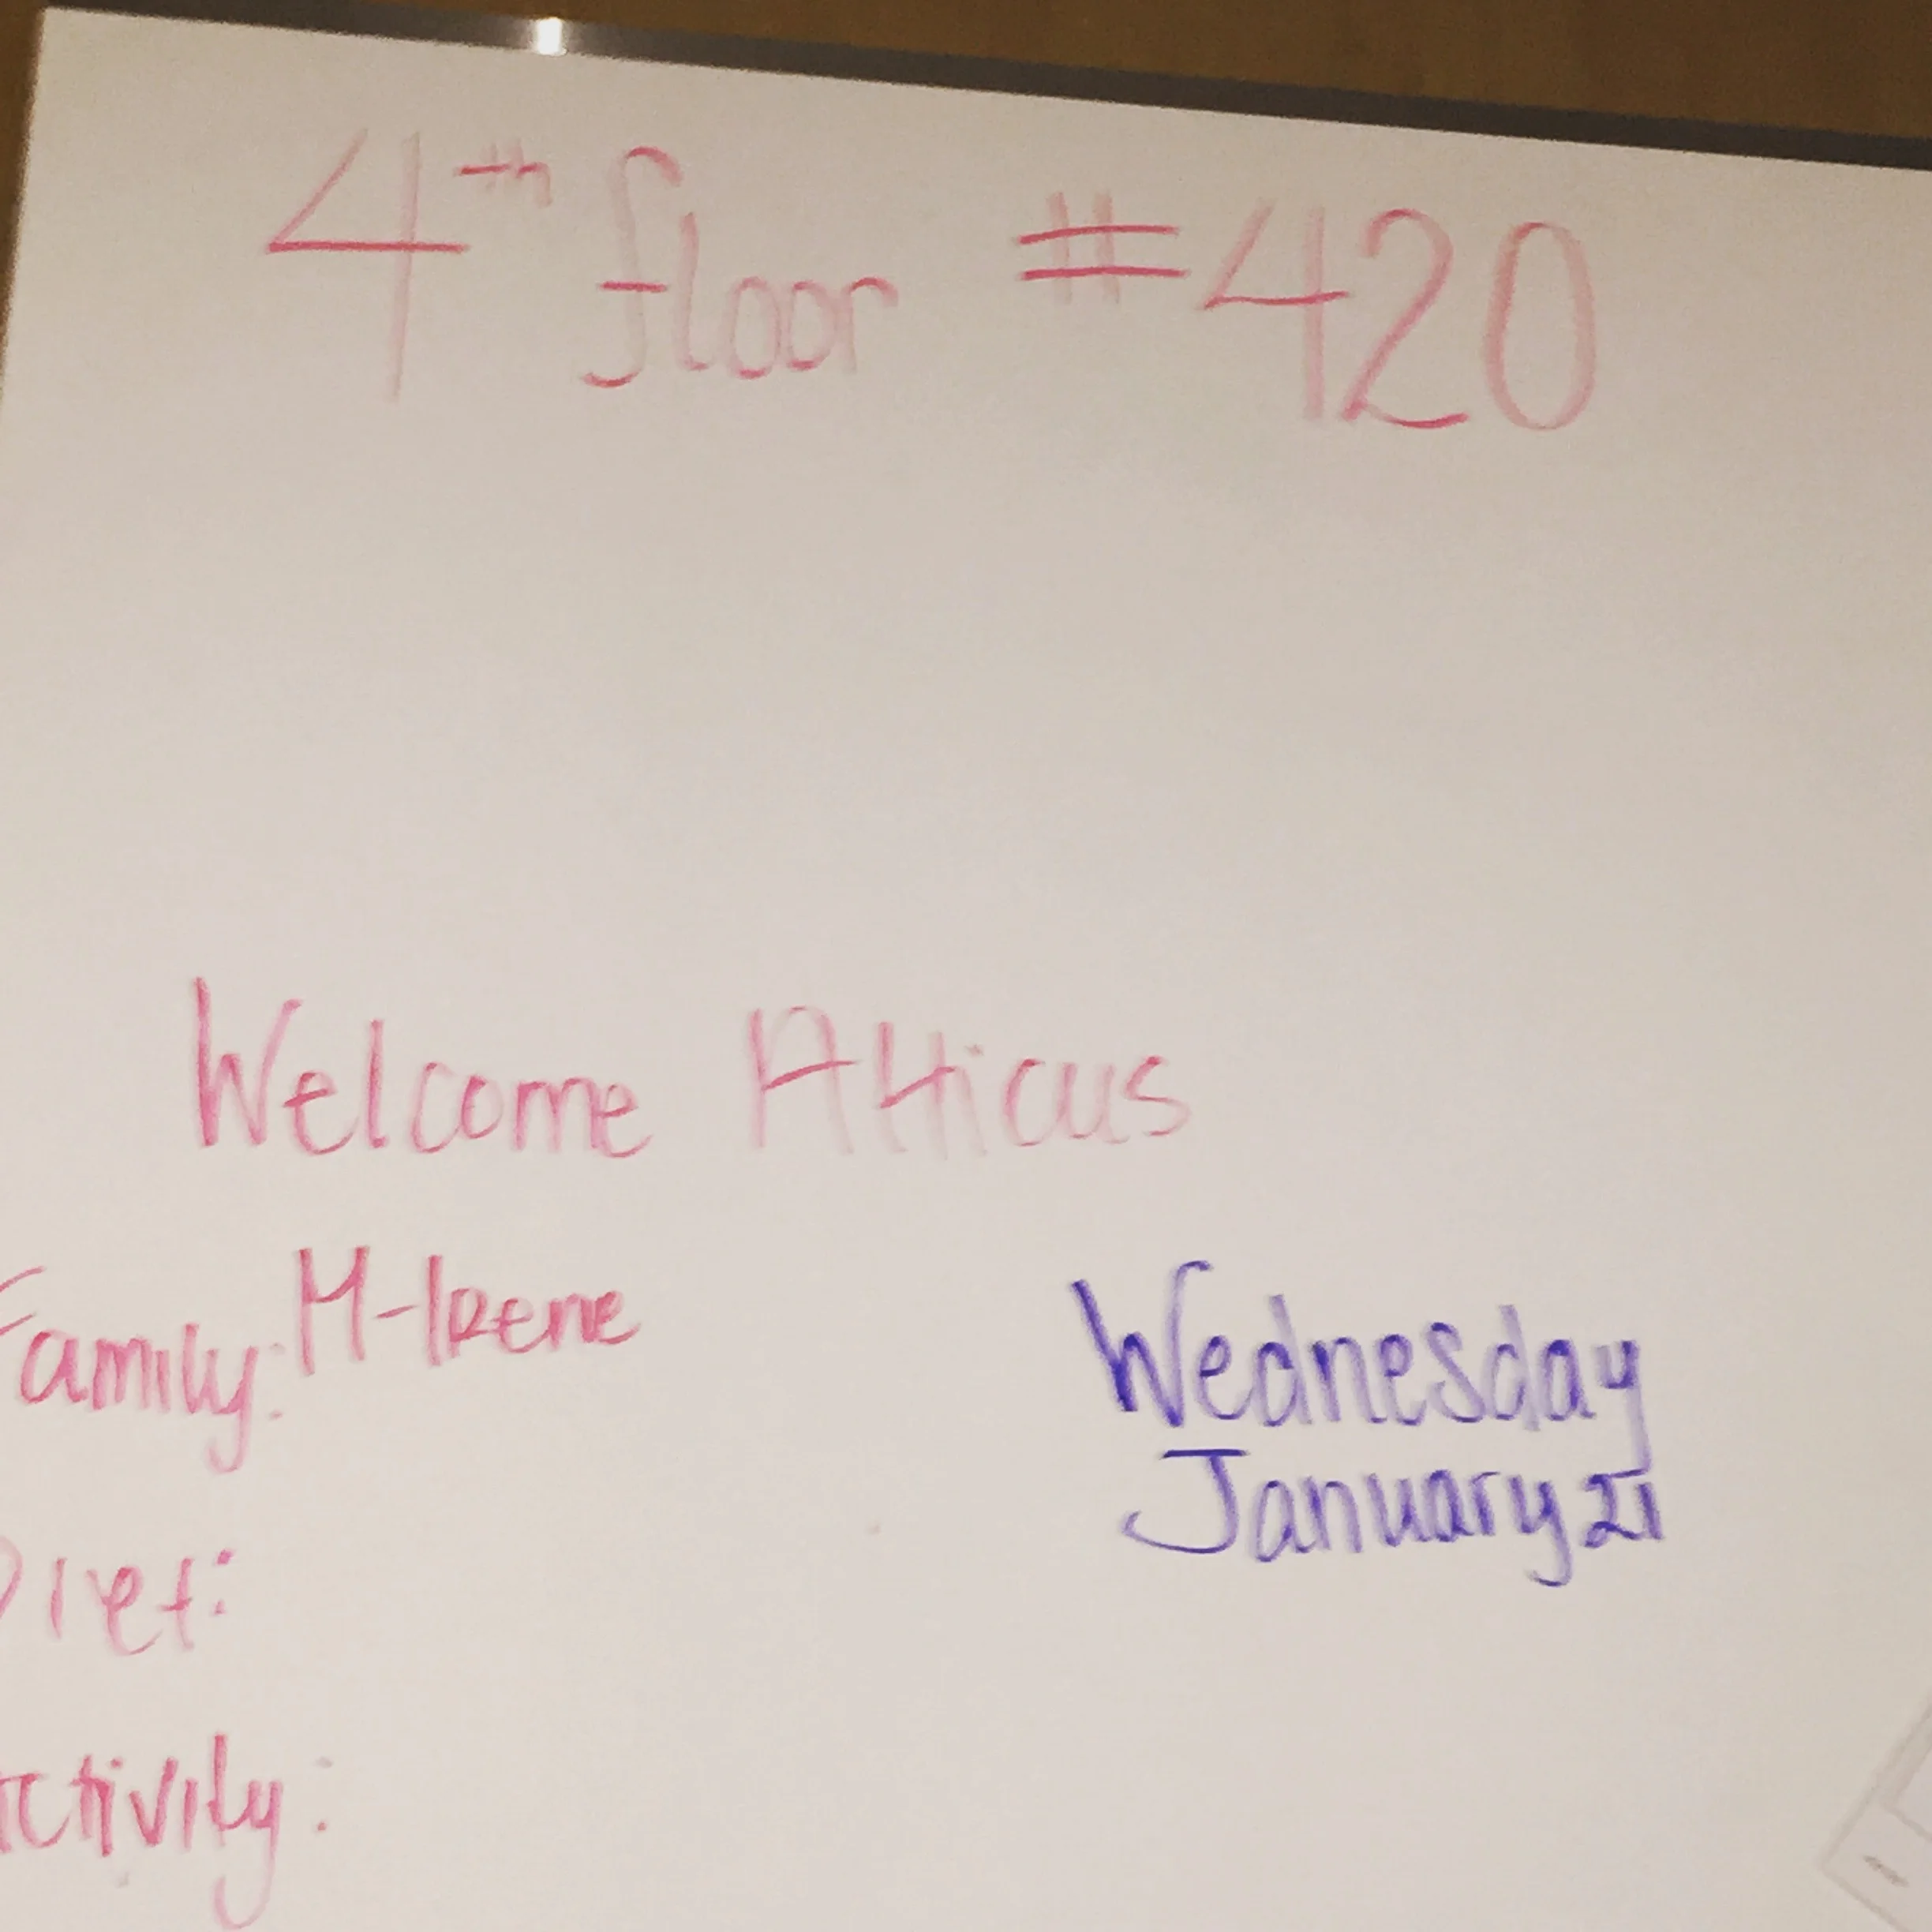 4th floor #420
Welcome Atticus
Family: M-Irene
Wednesday
January 21
Diet:
Activity: